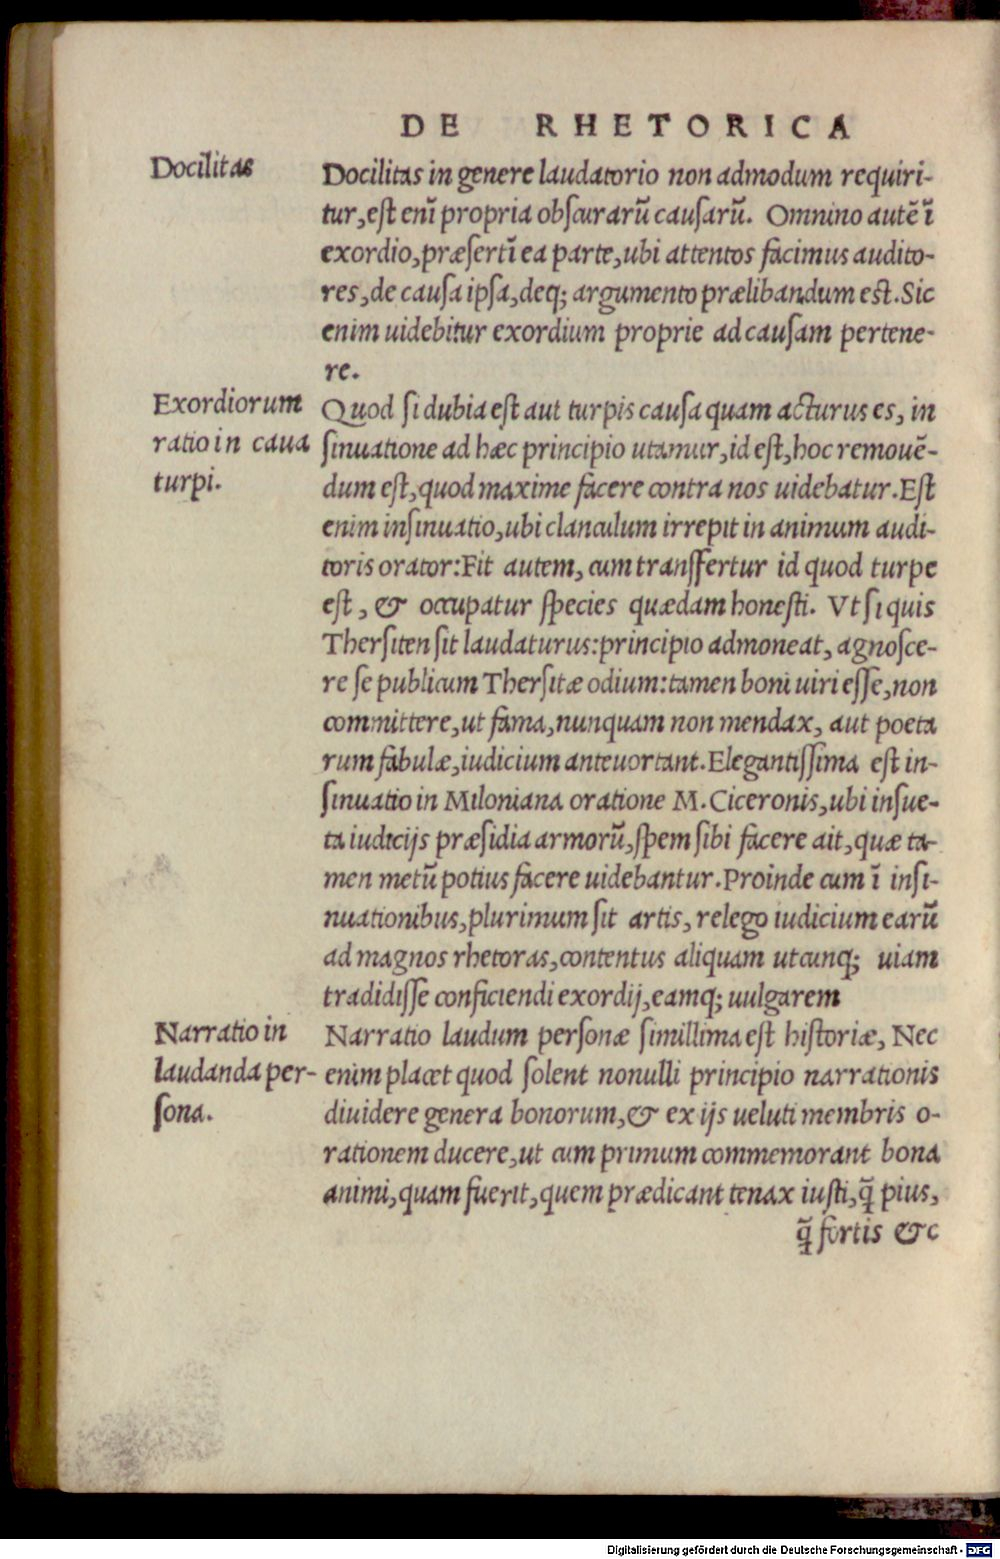 DE RHETORICA
Docilitas
Docilitas in genere laudatorio non admodum requiri-
tur, eſt enī propria obſcurarū cauſarū. Omnino autē ī
exordio, præſertī ea parte, ubi attentos facimus audito-
res, de cauſa ipſa, deq; argumento prælibandum eſt. Sic
enim uidebitur exordium proprie ad cauſam pertene-
re.
Exordiorum
ratio in caua
turpi.
Quod ſi dubia eſt aut turpis cauſa quam acturus es, in
ſinuatione ad hæc principio utamur, id eſt, hoc remouē-
dum eſt, quod maxime facere contra nos uidebatur. Eſt
enim inſinuatio, ubi clanculum irrepit in animum audi-
toris orator: Fit autem, cum tranſfertur id quod turpe
eſt, & occupatur ſpecies quædam honeſti. Vt ſi quis
Therſiten ſit laudaturus: principio admoneat, agnoſce-
re ſe publicum Therſitæ odium: tamen boni uiri eſſe, non
committere, ut fama, nunquam non mendax, aut poeta
rum fabulæ, iudicium anteuortant. Elegantiſſima eſt in-
ſinuatio in Miloniana oratione M. Ciceronis, ubi inſue-
ta iudicijs præſidia armorū, ſpem ſibi facere ait, quæ ta-
men metū potius facere uidebantur. Proinde cum ī inſi-
nuationibus, plurimum ſit artis, relego iudicium earū
ad magnos rhetoras, contentus aliquam utcunq; uiam
tradidiſſe conficiendi exordij, eamq; uulgarem
Narratio in
laudanda per-
ſona.
Narratio laudum perſonæ ſimillima eſt hiſtoriæ, Nec
enim placet quod ſolent nonulli principio narrationis
diuidere genera bonorum, & ex ijs ueluti membris o-
rationem ducere, ut cum primum commemorant bona
animi, quam fuerit, quem prædicant tenax iuſti, q̃ pius,
q̃ fortis &c
Digitalisierung gefördert durch die Deutsche Forschungsgemeinschaft - DFG